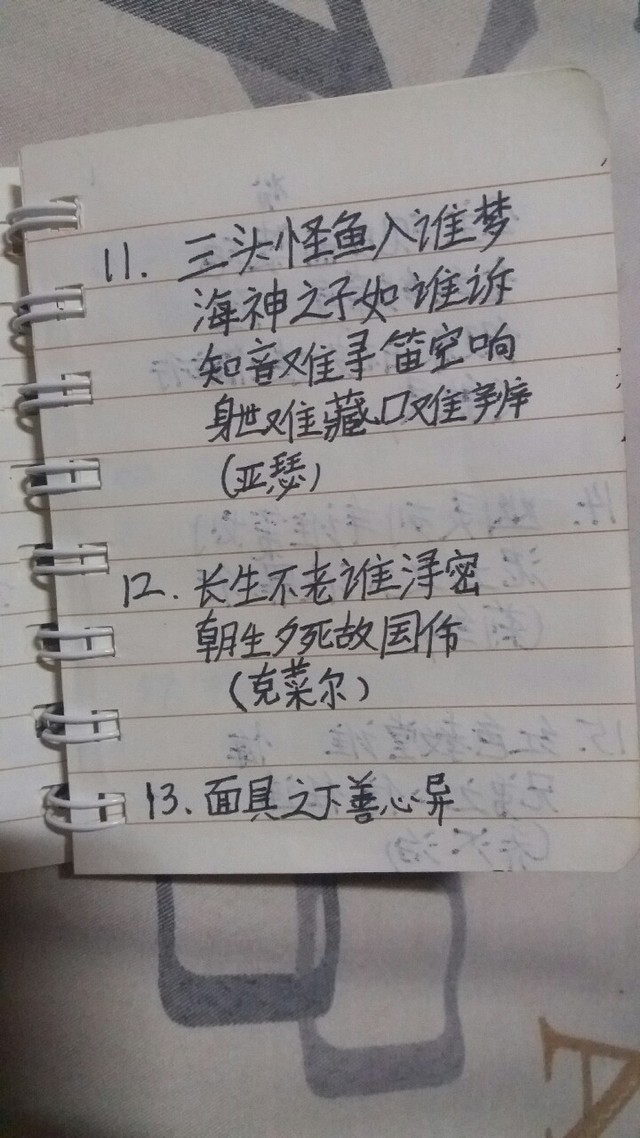 11. 三头怪鱼入谁梦
海神之子如谁诉
知音难寻笛空响
身世难藏口难辨
(亚瑟)
12. 长生不老谁得密
朝生夕死故国佈
(克莱尔)
13. 面具之下善心异